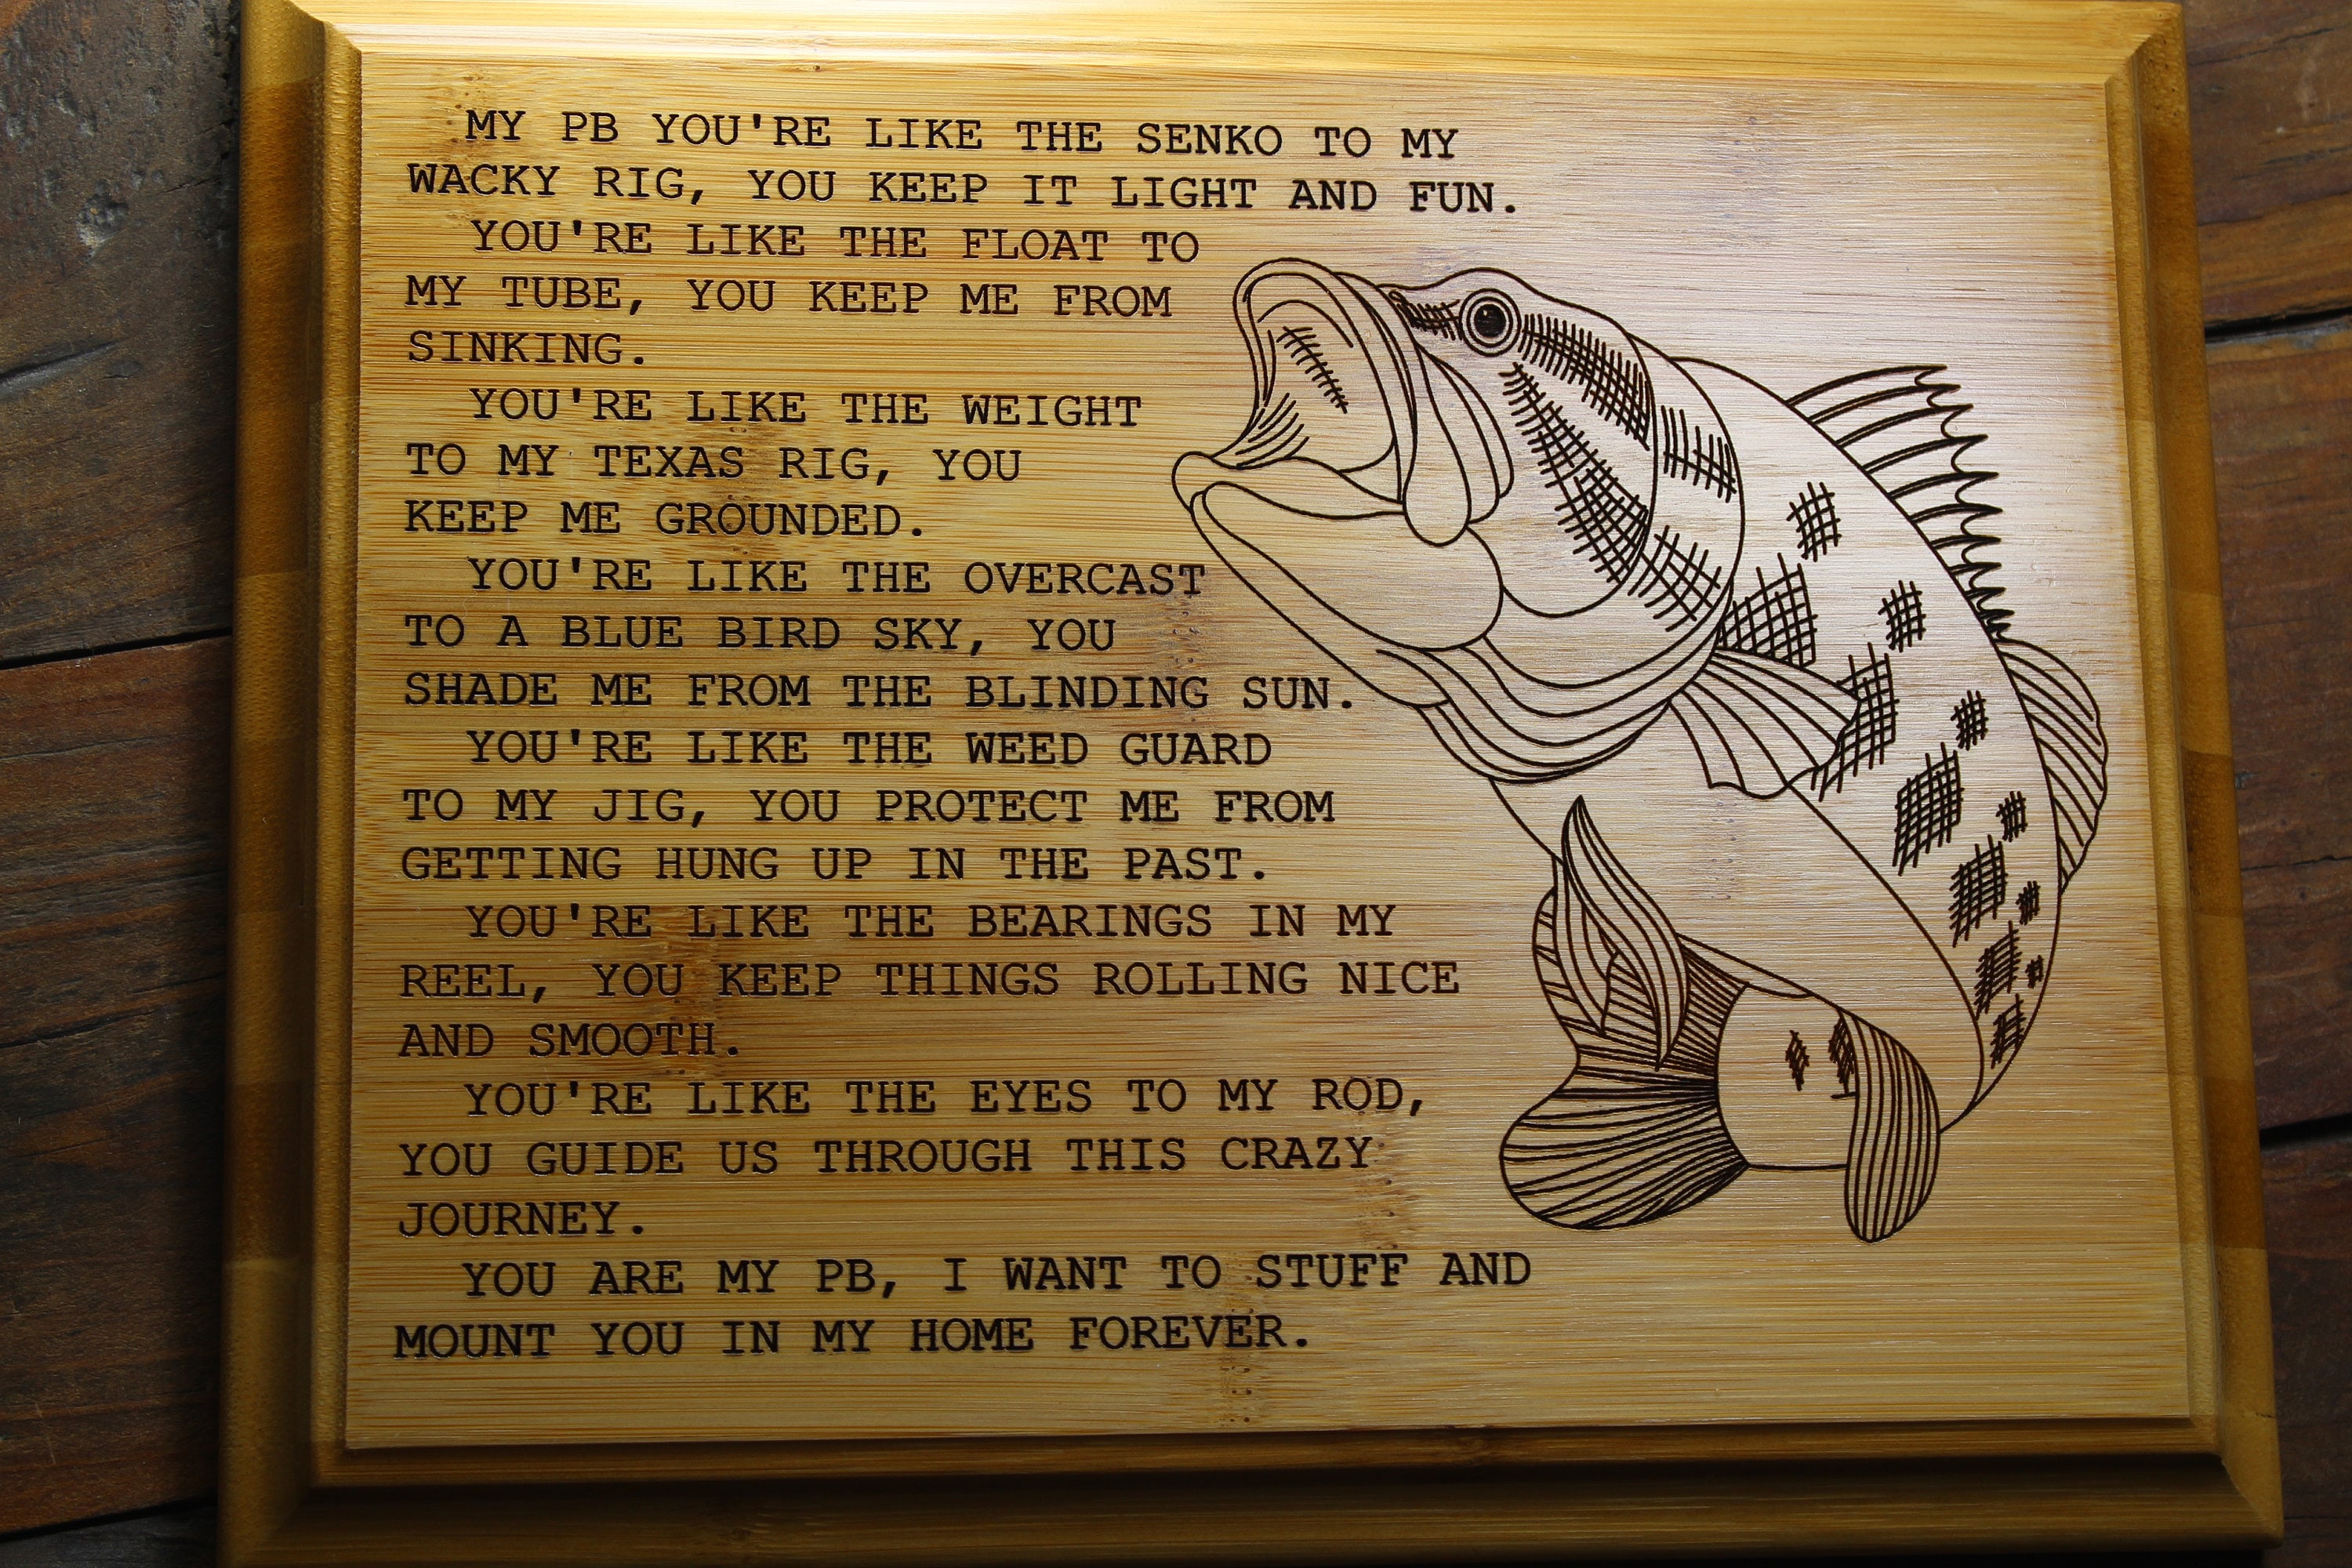 MY PB YOU'RE LIKE THE SENKO TO MY
WACKY RIG, YOU KEEP IT LIGHT AND FUN.
YOU'RE LIKE THE FLOAT TO
MY TUBE, YOU KEEP ME FROM
SINKING.
YOU'RE LIKE THE WEIGHT
TO MY TEXAS RIG, YOU
KEEP ME GROUNDED.
YOU'RE LIKE THE OVERCAST
TO A BLUE BIRD SKY, YOU
SHADE ME FROM THE BLINDING SUN.
YOU'RE LIKE THE WEED GUARD
TO MY JIG, YOU PROTECT ME FROM
GETTING HUNG UP IN THE PAST.
YOU'RE LIKE THE BEARINGS IN MY
REEL, YOU KEEP THINGS ROLLING NICE
AND SMOOTH.
YOU'RE LIKE THE EYES TO MY ROD,
YOU GUIDE US THROUGH THIS CRAZY
JOURNEY.
YOU ARE MY PB, I WANT TO STUFF AND
MOUNT YOU IN MY HOME FOREVER.